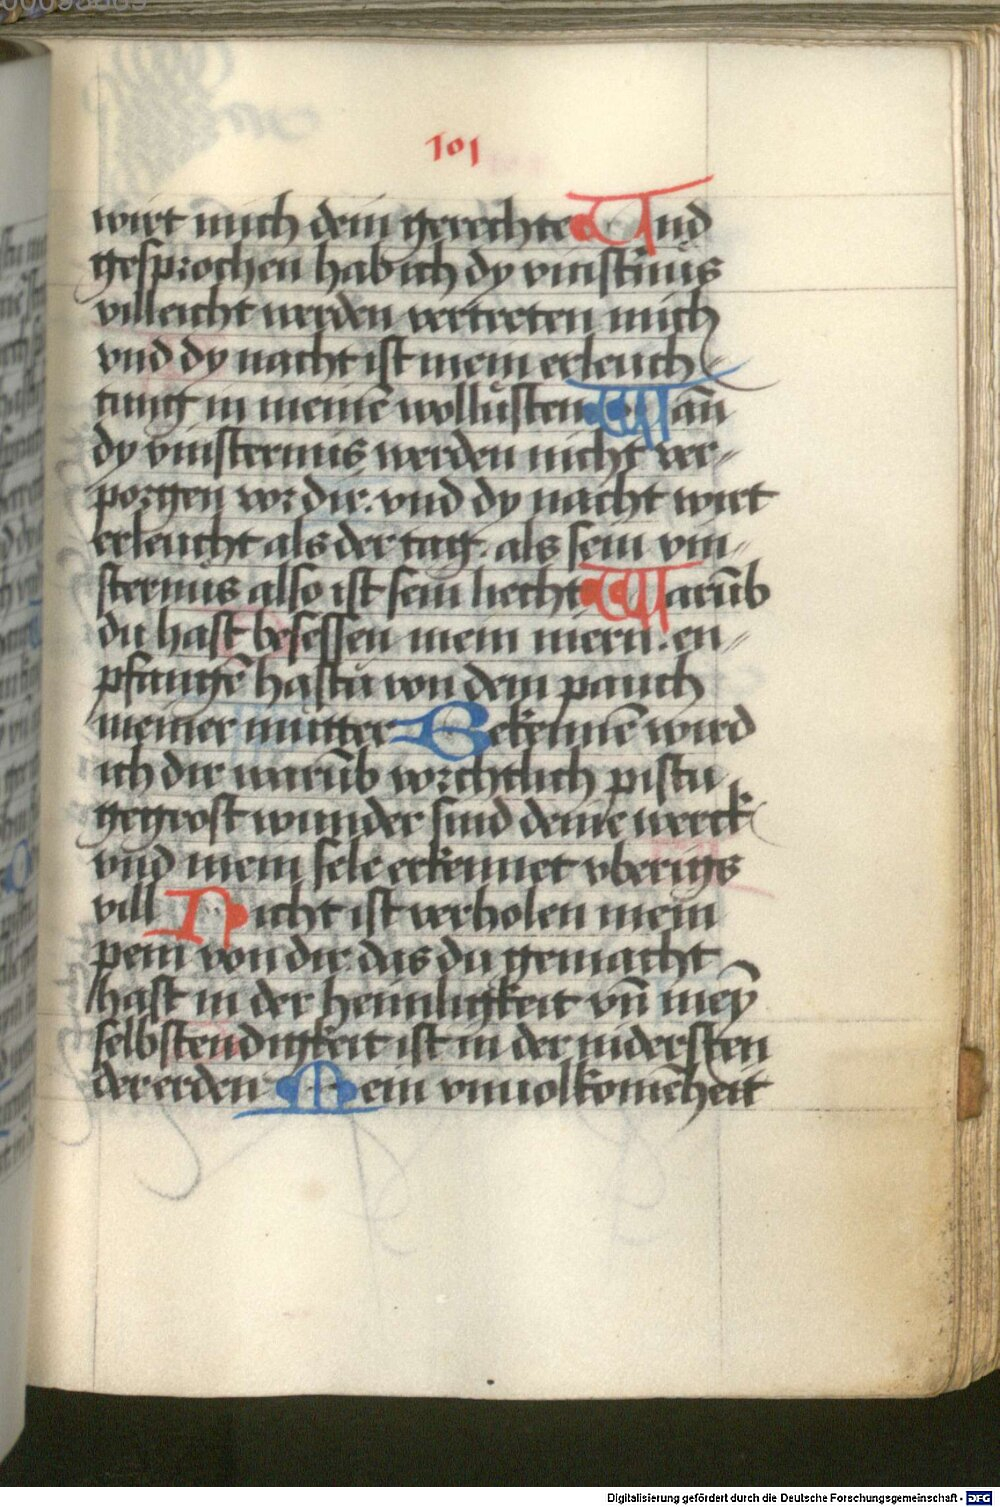 101
wirt mich dein gerechte Vnd
gesprochen hab ich dy vinst̄nüs
villeicht werden vertreten mich
vnd dy nacht ist mein erleuch
tung in meinē wollüsten Wañ
dy vinsternus werden nicht ver-
porgen vor dir. vnd dy nacht wirt
erleucht als der tag. als sein vin-
sternüs also ist sein liecht Warūb
du hast besessen mein niern. en-
pfangē hastu von dem pauch
meiner mutter Bekennē wird
ich dir warūb vorchtlich pistu
gegrost wunder sind deine werck
vnd mein sele erkennet vberigs
vill Nicht ist verholen mein
pein von dir. das du gemacht
hast in der heimligkeit vn̄ mey̅
selbstendigkeit ist in der nidersten
der erden Mein vnuolkomēheit
Digitalisierung gefördert durch die Deutsche Forschungsgemeinschaft - DFG